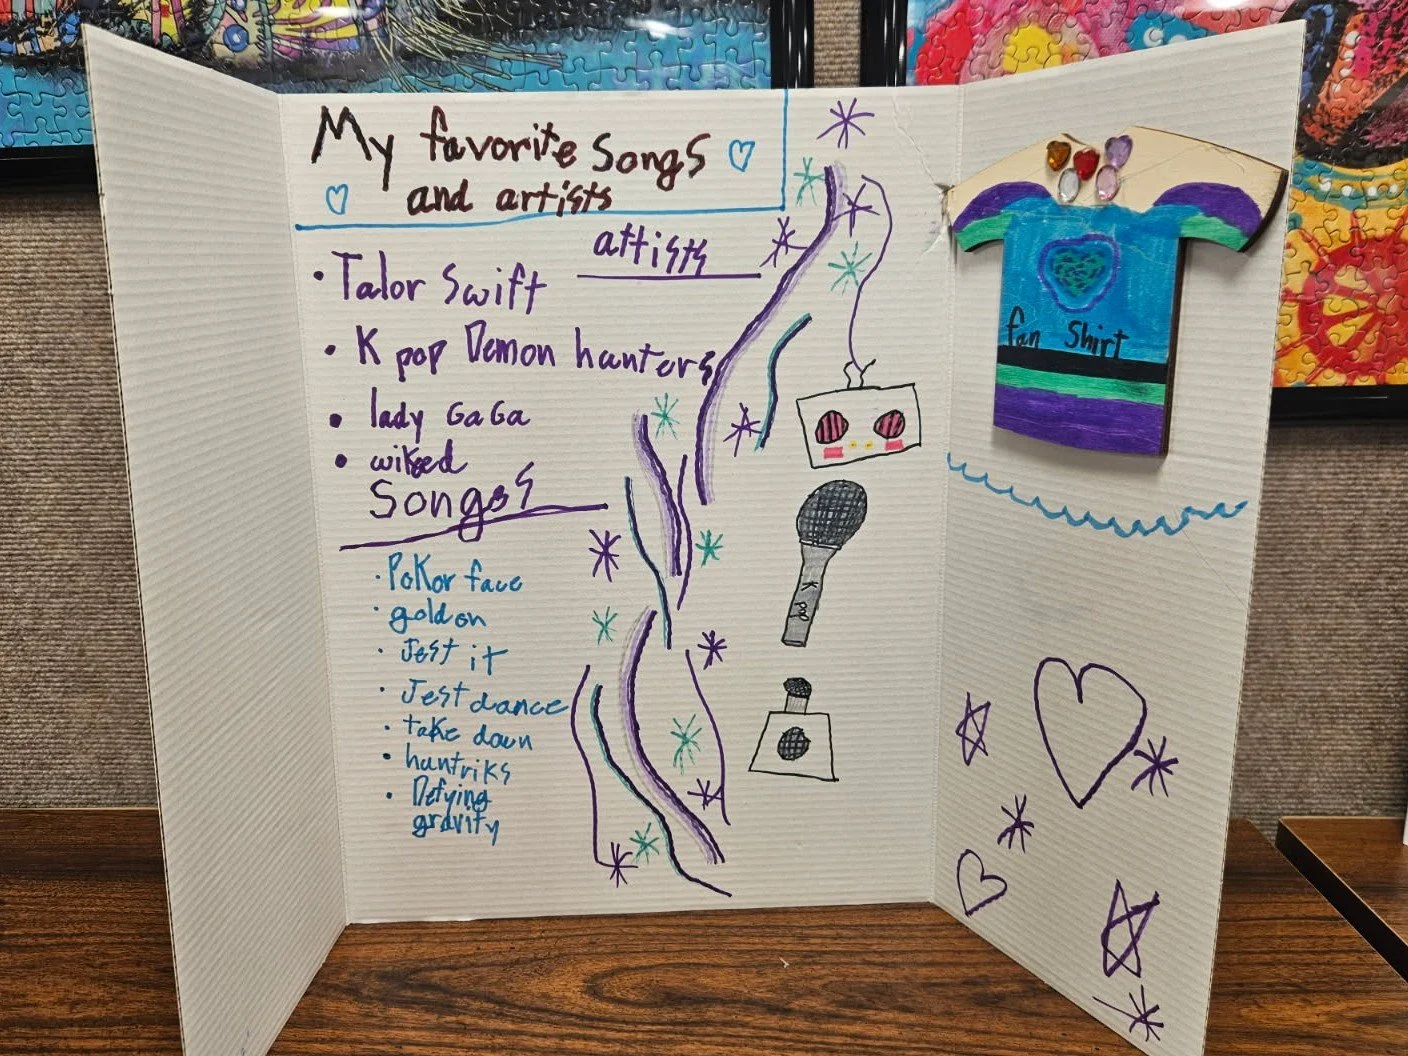 My favorite songs
and artists
attists
• Talor Swift
• K pop Demon hunters
• lady GaGa
• wiked
Songs
• PoKor face
• gold on
• Jest it
• Jest dance
• take down
• huntriks
• Defying
gravity
K pop
fan Shirt